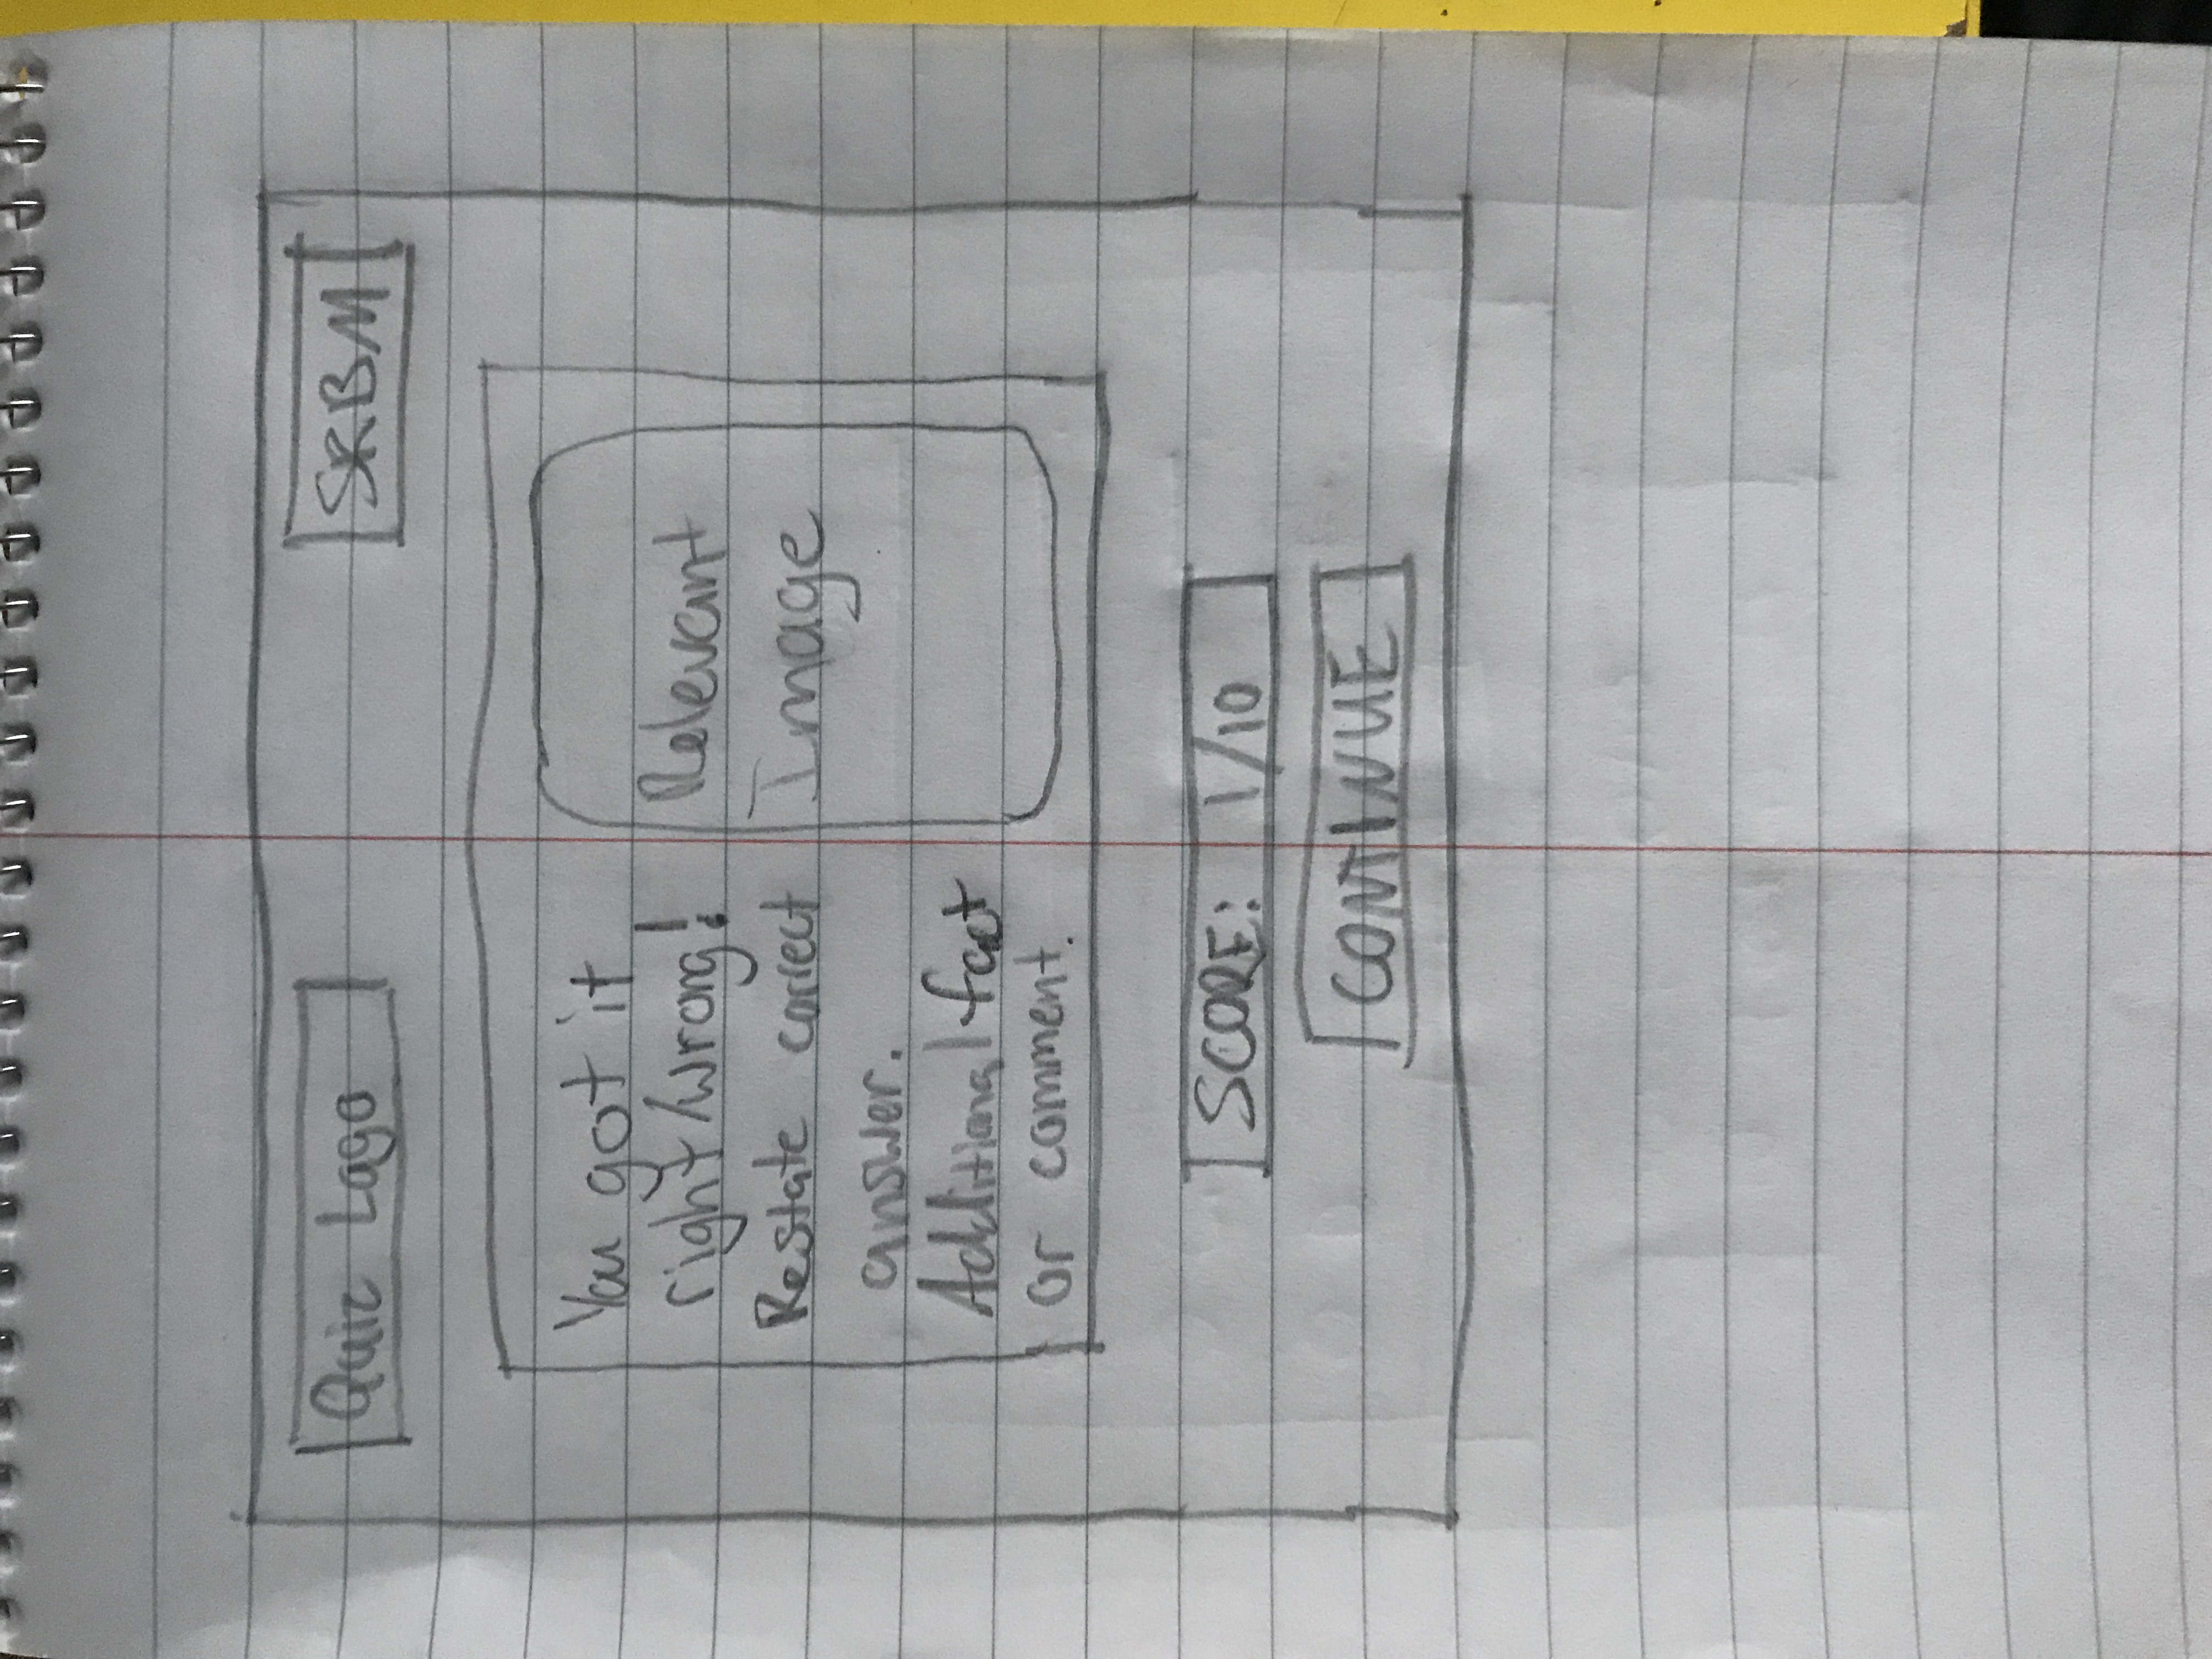 Quiz Logo
SRBM
You got it
right/wrong!
Restate correct
answer.
Additional fact
or comment.
Relevant
Image
SCORE: 1/10
CONTINUE